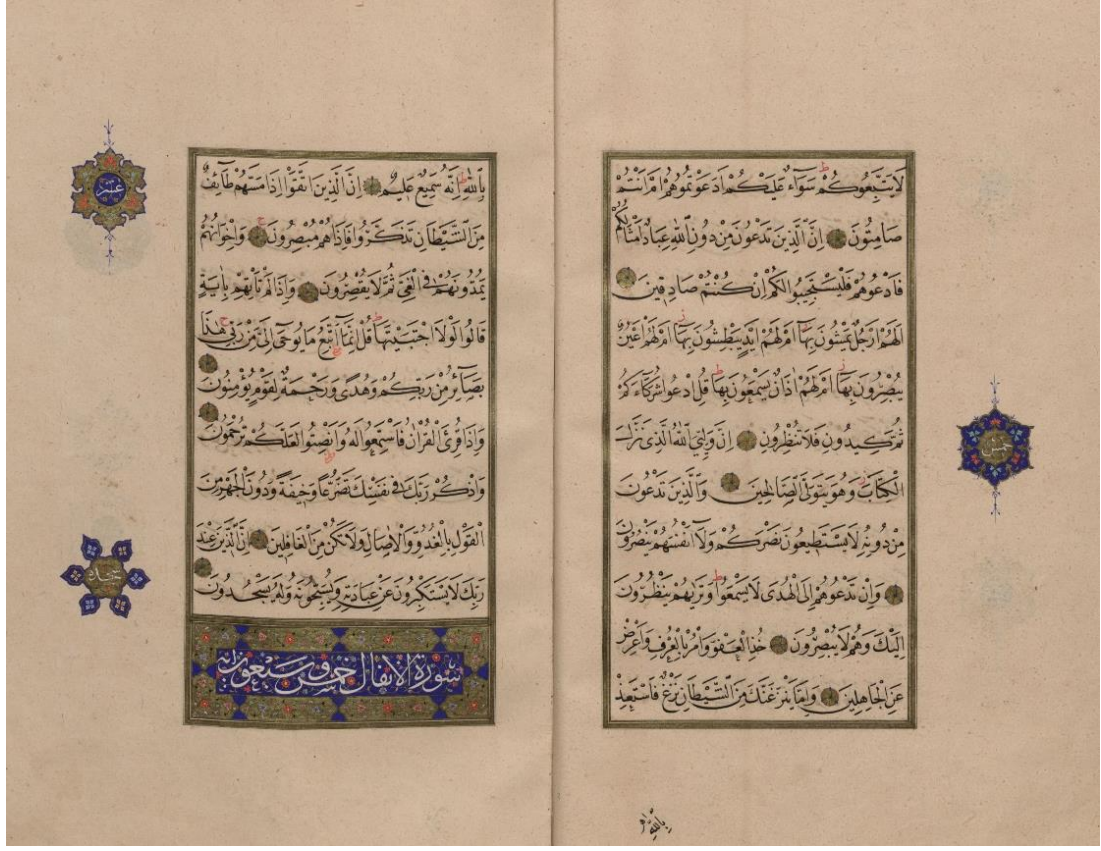 لَا يَتَّبِعُوكُمْ سَوَاءٌ عَلَيْكُمْ أَدَعَوْتُمُوهُمْ أَمْ أَنْتُمْ
صَامِتُونَ إِنَّ الَّذِينَ تَدْعُونَ مِنْ دُونِ اللَّهِ عِبَادٌ أَمْثَالُكُمْ
فَادْعُوهُمْ فَلْيَسْتَجِيبُوا لَكُمْ إِنْ كُنْتُمْ صَادِقِينَ
أَلَهُمْ أَرْجُلٌ يَمْشُونَ بِهَا أَمْ لَهُمْ أَيْدٍ يَبْطِشُونَ بِهَا أَمْ لَهُمْ أَعْيُنٌ
يُبْصِرُونَ بِهَا أَمْ لَهُمْ آذَانٌ يَسْمَعُونَ بِهَا قُلِ ادْعُوا شُرَكَاءَكُمْ
ثُمَّ كِيدُونِ فَلَا تُنْظِرُونِ إِنَّ وَلِيِّيَ اللَّهُ الَّذِي نَزَّلَ
الْكِتَابَ وَهُوَ يَتَوَلَّى الصَّالِحِينَ وَالَّذِينَ تَدْعُونَ
مِنْ دُونِهِ لَا يَسْتَطِيعُونَ نَصْرَكُمْ وَلَا أَنْفُسَهُمْ يَنْصُرُونَ
وَإِنْ تَدْعُوهُمْ إِلَى الْهُدَى لَا يَسْمَعُوا وَتَرَاهُمْ يَنْظُرُونَ
إِلَيْكَ وَهُمْ لَا يُبْصِرُونَ خُذِ الْعَفْوَ وَأْمُرْ بِالْعُرْفِ وَأَعْرِضْ
عَنِ الْجَاهِلِينَ وَإِمَّا يَنْزَغَنَّكَ مِنَ الشَّيْطَانِ نَزْغٌ فَاسْتَعِذْ
خمس
بِاللَّهِ إِنَّهُ
بِاللَّهِ إِنَّهُ سَمِيعٌ عَلِيمٌ إِنَّ الَّذِينَ اتَّقَوْا إِذَا مَسَّهُمْ طَائِفٌ
مِنَ الشَّيْطَانِ تَذَكَّرُوا فَإِذَا هُمْ مُبْصِرُونَ وَإِخْوَانُهُمْ
يَمُدُّونَهُمْ فِي الْغَيِّ ثُمَّ لَا يُقْصِرُونَ وَإِذَا لَمْ تَأْتِهِمْ بِآيَةٍ
قَالُوا لَوْلَا اجْتَبَيْتَهَا قُلْ إِنَّمَا أَتَّبِعُ مَا يُوحَى إِلَيَّ مِنْ رَبِّي هَذَا
بَصَائِرُ مِنْ رَبِّكُمْ وَهُدًى وَرَحْمَةٌ لِقَوْمٍ يُؤْمِنُونَ
وَإِذَا قُرِئَ الْقُرْآنُ فَاسْتَمِعُوا لَهُ وَأَنْصِتُوا لَعَلَّكُمْ تُرْحَمُونَ
وَاذْكُرْ رَبَّكَ فِي نَفْسِكَ تَضَرُّعًا وَخِيفَةً وَدُونَ الْجَهْرِ مِنَ
الْقَوْلِ بِالْغُدُوِّ وَالْآصَالِ وَلَا تَكُنْ مِنَ الْغَافِلِينَ إِنَّ الَّذِينَ عِنْدَ
رَبِّكَ لَا يَسْتَكْبِرُونَ عَنْ عِبَادَتِهِ وَيُسَبِّحُونَهُ وَلَهُ يَسْجُدُونَ
سورة الانفال خمس وسبعون اية
عشر
سجدة